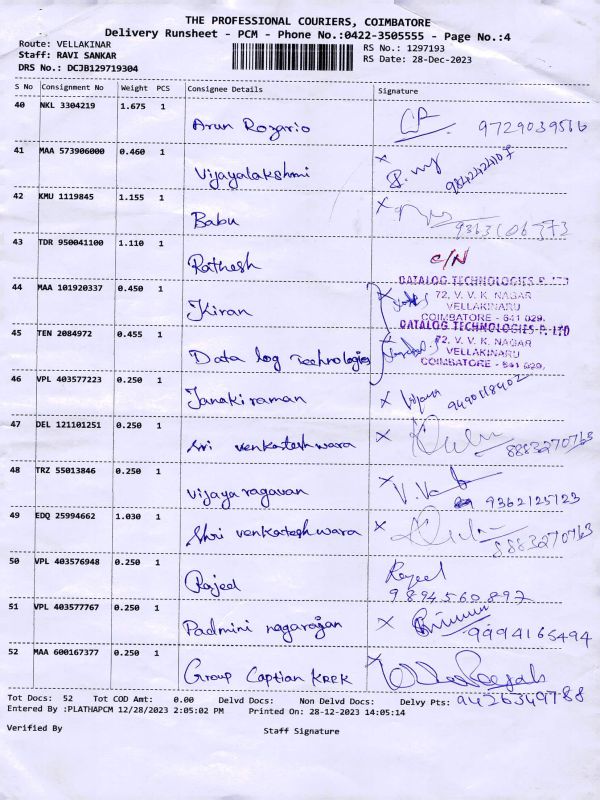 THE PROFESSIONAL COURIERS, COIMBATORE
Delivery Runsheet - PCM - Phone No.:0422-3505555 - Page No.:4
Route: VELLAKINAR RS No.: 1297193
Staff: RAVI SANKAR RS Date: 28-Dec-2023
DRS No.: DCJB129719304
S No Consignment No Weight PCS Consignee Details Signature
40 NKL 3304219 1.675 1 Arun Rozario
41 MAA 573906000 0.460 1 Vijayalakshmi 9842424107
42 KMU 1119845 1.155 1 Babu
43 TDR 950041100 1.110 1 Rathesh C/N
44 MAA 101920337 0.450 1 Kiran
DATALOG TECHNOLOGIES P. LTD
72, V. V. K. NAGAR
VELLAKINARU
COIMBATORE - 641 029.
45 TEN 2084972 0.455 1 Data log Technologies
DATALOG TECHNOLOGIES P. LTD
72, V. V. K. NAGAR
VELLAKINARU
COIMBATORE - 641 029.
46 VPL 403577223 0.250 1 Janakiraman
47 DEL 121101251 0.250 1 Sri venkateshwara 8883270763
48 TRZ 55013846 0.250 1 Vijayaragavan 9362125123
49 EDQ 25994662 1.030 1 Shri venkateshwara 8883270763
50 VPL 403576948 0.250 1 Rajeel Rajeel
9894560897
51 VPL 403577767 0.250 1 Padmini nagarajan 9994165494
52 MAA 600167377 0.250 1 Group Captian KREK
9426349788
Tot Docs: 52 Tot COD Amt: 0.00 Delvd Docs: Non Delvd Docs: Delvy Pts:
Entered By :PLATHAPCM 12/28/2023 2:05:02 PM Printed On: 28-12-2023 14:05:14
Verified By Staff Signature